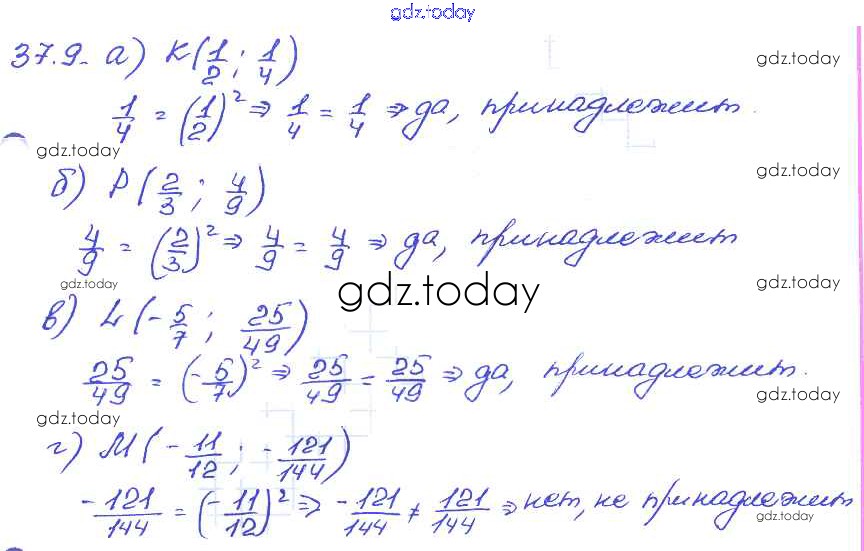 gdz.today
37.9. а) K(1/2; 1/4)
gdz.today
1/4 = (1/2)² ⇒ 1/4 = 1/4 ⇒ да, принадлежит.
gdz.today
gdz.today
б) P(2/3; 4/9)
4/9 = (2/3)² ⇒ 4/9 = 4/9 ⇒ да, принадлежит
gdz.today
gdz.today
gdz.today
в) L(-5/7; 25/49)
25/49 = (-5/7)² ⇒ 25/49 = 25/49 ⇒ да, принадлежит.
gdz.today
gdz.today
г) M(-11/12; -121/144)
gdz.today
-121/144 = (-11/12)² ⇒ -121/144 ≠ 121/144 ⇒ нет, не принадлежит
gdz.today